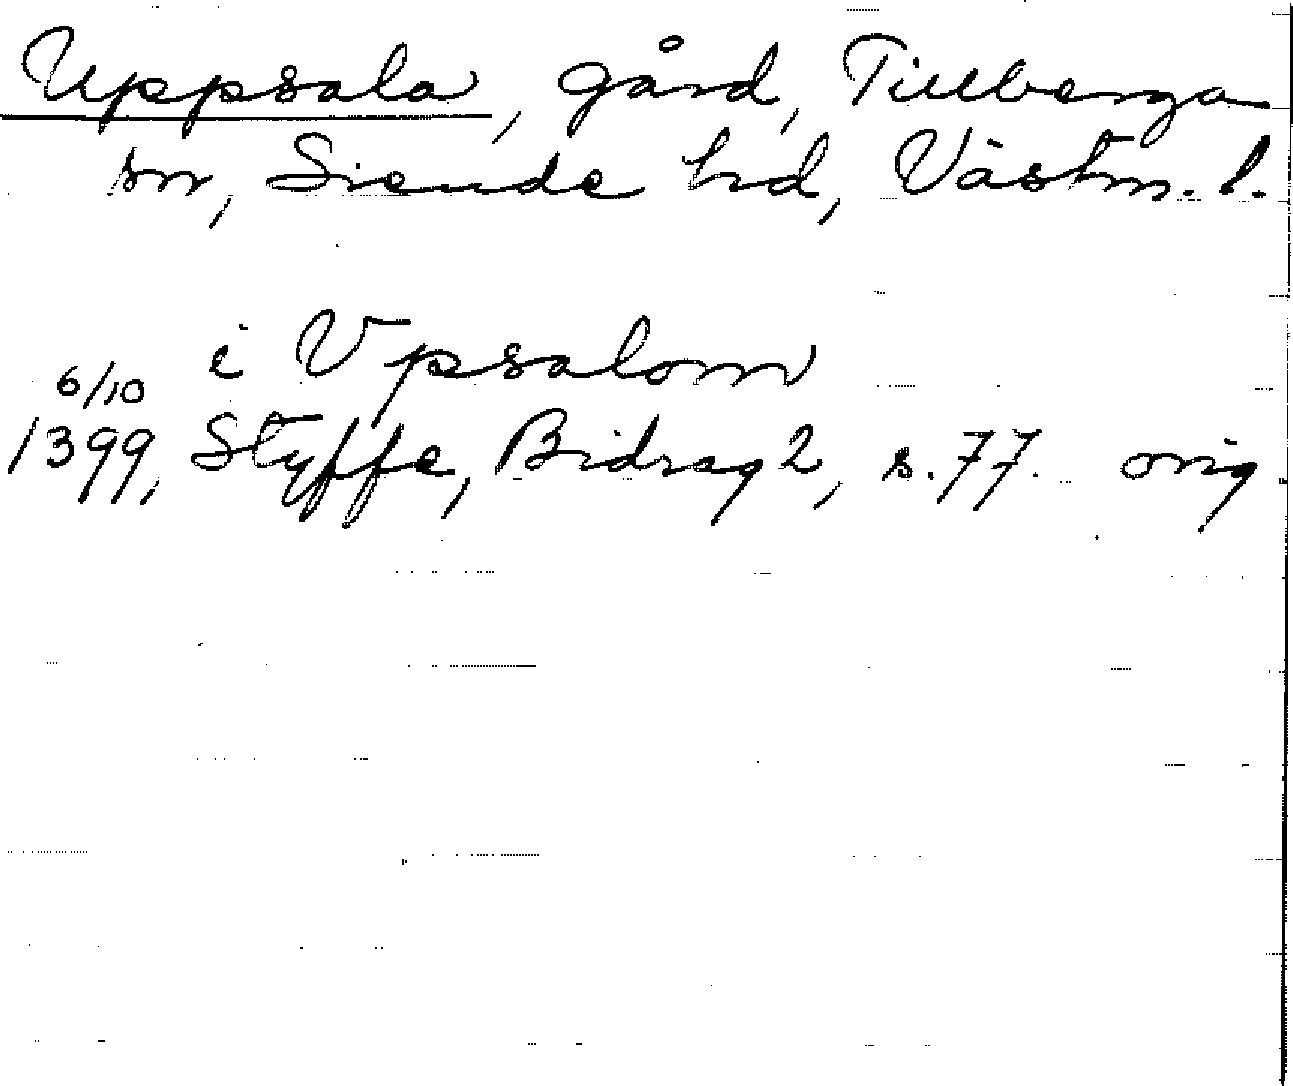 Uppsala, gård, Tillberga
sn, Siende hd, Västm. l.
i Vpsalom
6/10
1399, Styffe, Bidrag 2, s. 77. orig